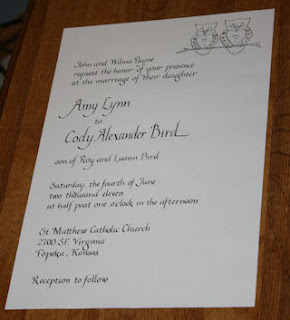 John and Wilma Payne
request the honor of your presence
at the marriage of their daughter
Amy Lynn
to
Cody Alexander Bird
son of Roy and Luann Bird
Saturday, the fourth of June
two thousand eleven
at half past one o'clock in the afternoon
St. Matthew Catholic Church
2700 SE Virginia
Topeka, Kansas
Reception to follow